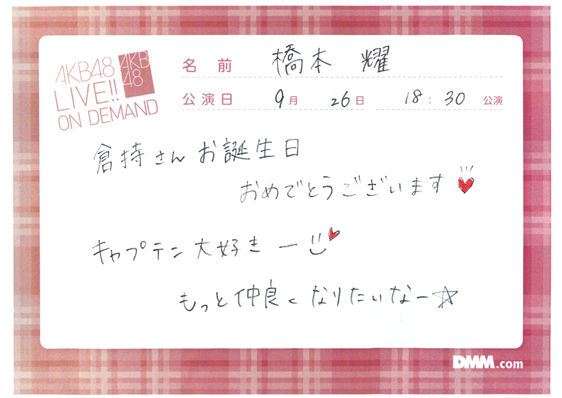 AKB48
LIVE!!
ON DEMAND
AKB
48
名前 橋本 耀
公演日 9月 26日 18:30 公演
倉持さんお誕生日
おめでとうございます
キャプテン大好きー
もっと仲良くなりたいなー☆
DMM.com